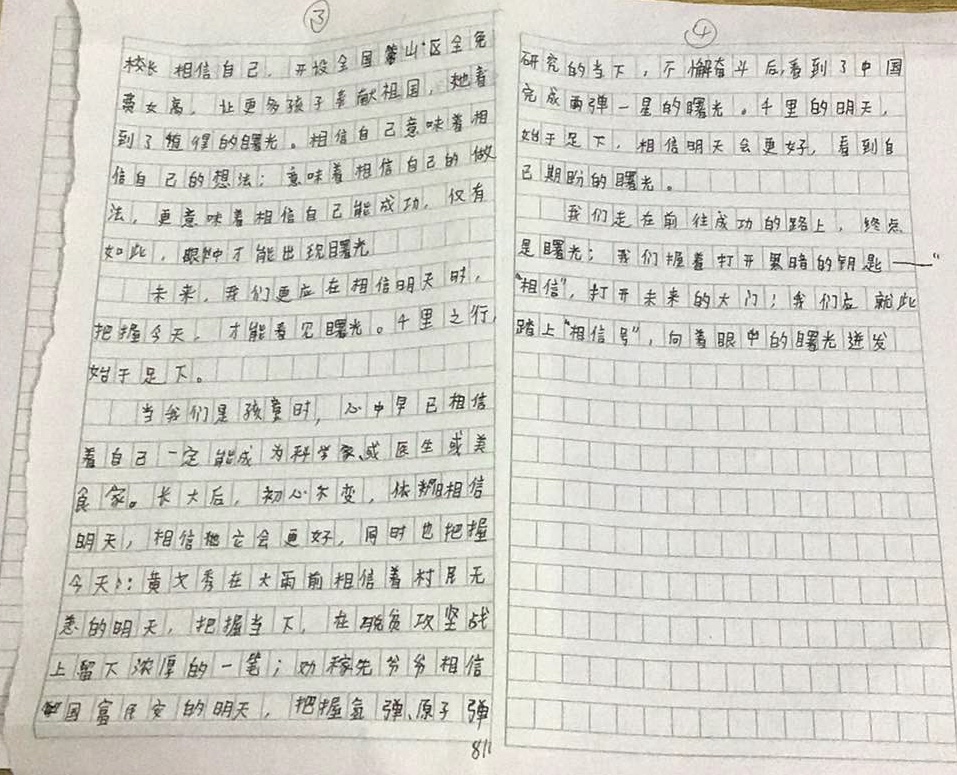 ③
校长相信自己，开设全国第山区全免
费女高，让更多孩子奉献祖国，她看
到了憧憬的曙光。相信自己意味着相
信自己的想法；意味着相信自己的做
法，更意味着相信自己能成功，仅有
如此，眼中才能出现曙光
未来，我们更应在相信明天时，
把握今天，才能看见曙光。千里之行，
始于足下。
当我们是孩童时，心中早已相信
着自己一定能成为科学家或医生或美
食家。长大后，初心不变，依相信
明天，相信它会更好，同时也把握
今天：黄文秀在大雨前相信着村民无
恙的明天，把握当下，在脱贫攻坚战
上留下浓厚的一笔；邓稼先爷爷相信
国富民安的明天，把握氢弹、原子弹
811
④
研究的当下，不懈奋斗后，看到了中国
完成两弹一星的曙光。千里的明天，
始于足下，相信明天会更好，看到自
己期盼的曙光。
我们走在前往成功的路上，终点
是曙光；我们握着打开黑暗的钥匙——“
“相信”，打开未来的大门；我们应就此
踏上“相信号”，向着眼中的曙光迸发